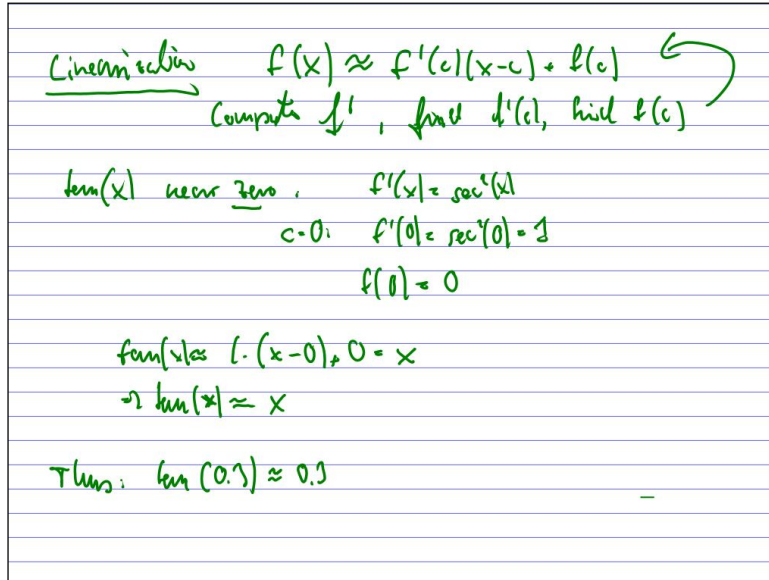 Linearization f(x) ≈ f'(c)(x-c) + f(c)
Compute f', find f'(c), find f(c)
tan(x) near zero: f'(x) = sec²(x)
c=0: f'(0) = sec²(0) = 1
f(0) = 0
tan(x) ≈ 1·(x-0)+0 = x
⇒ tan(x) ≈ x
Thus: tan(0.1) ≈ 0.1